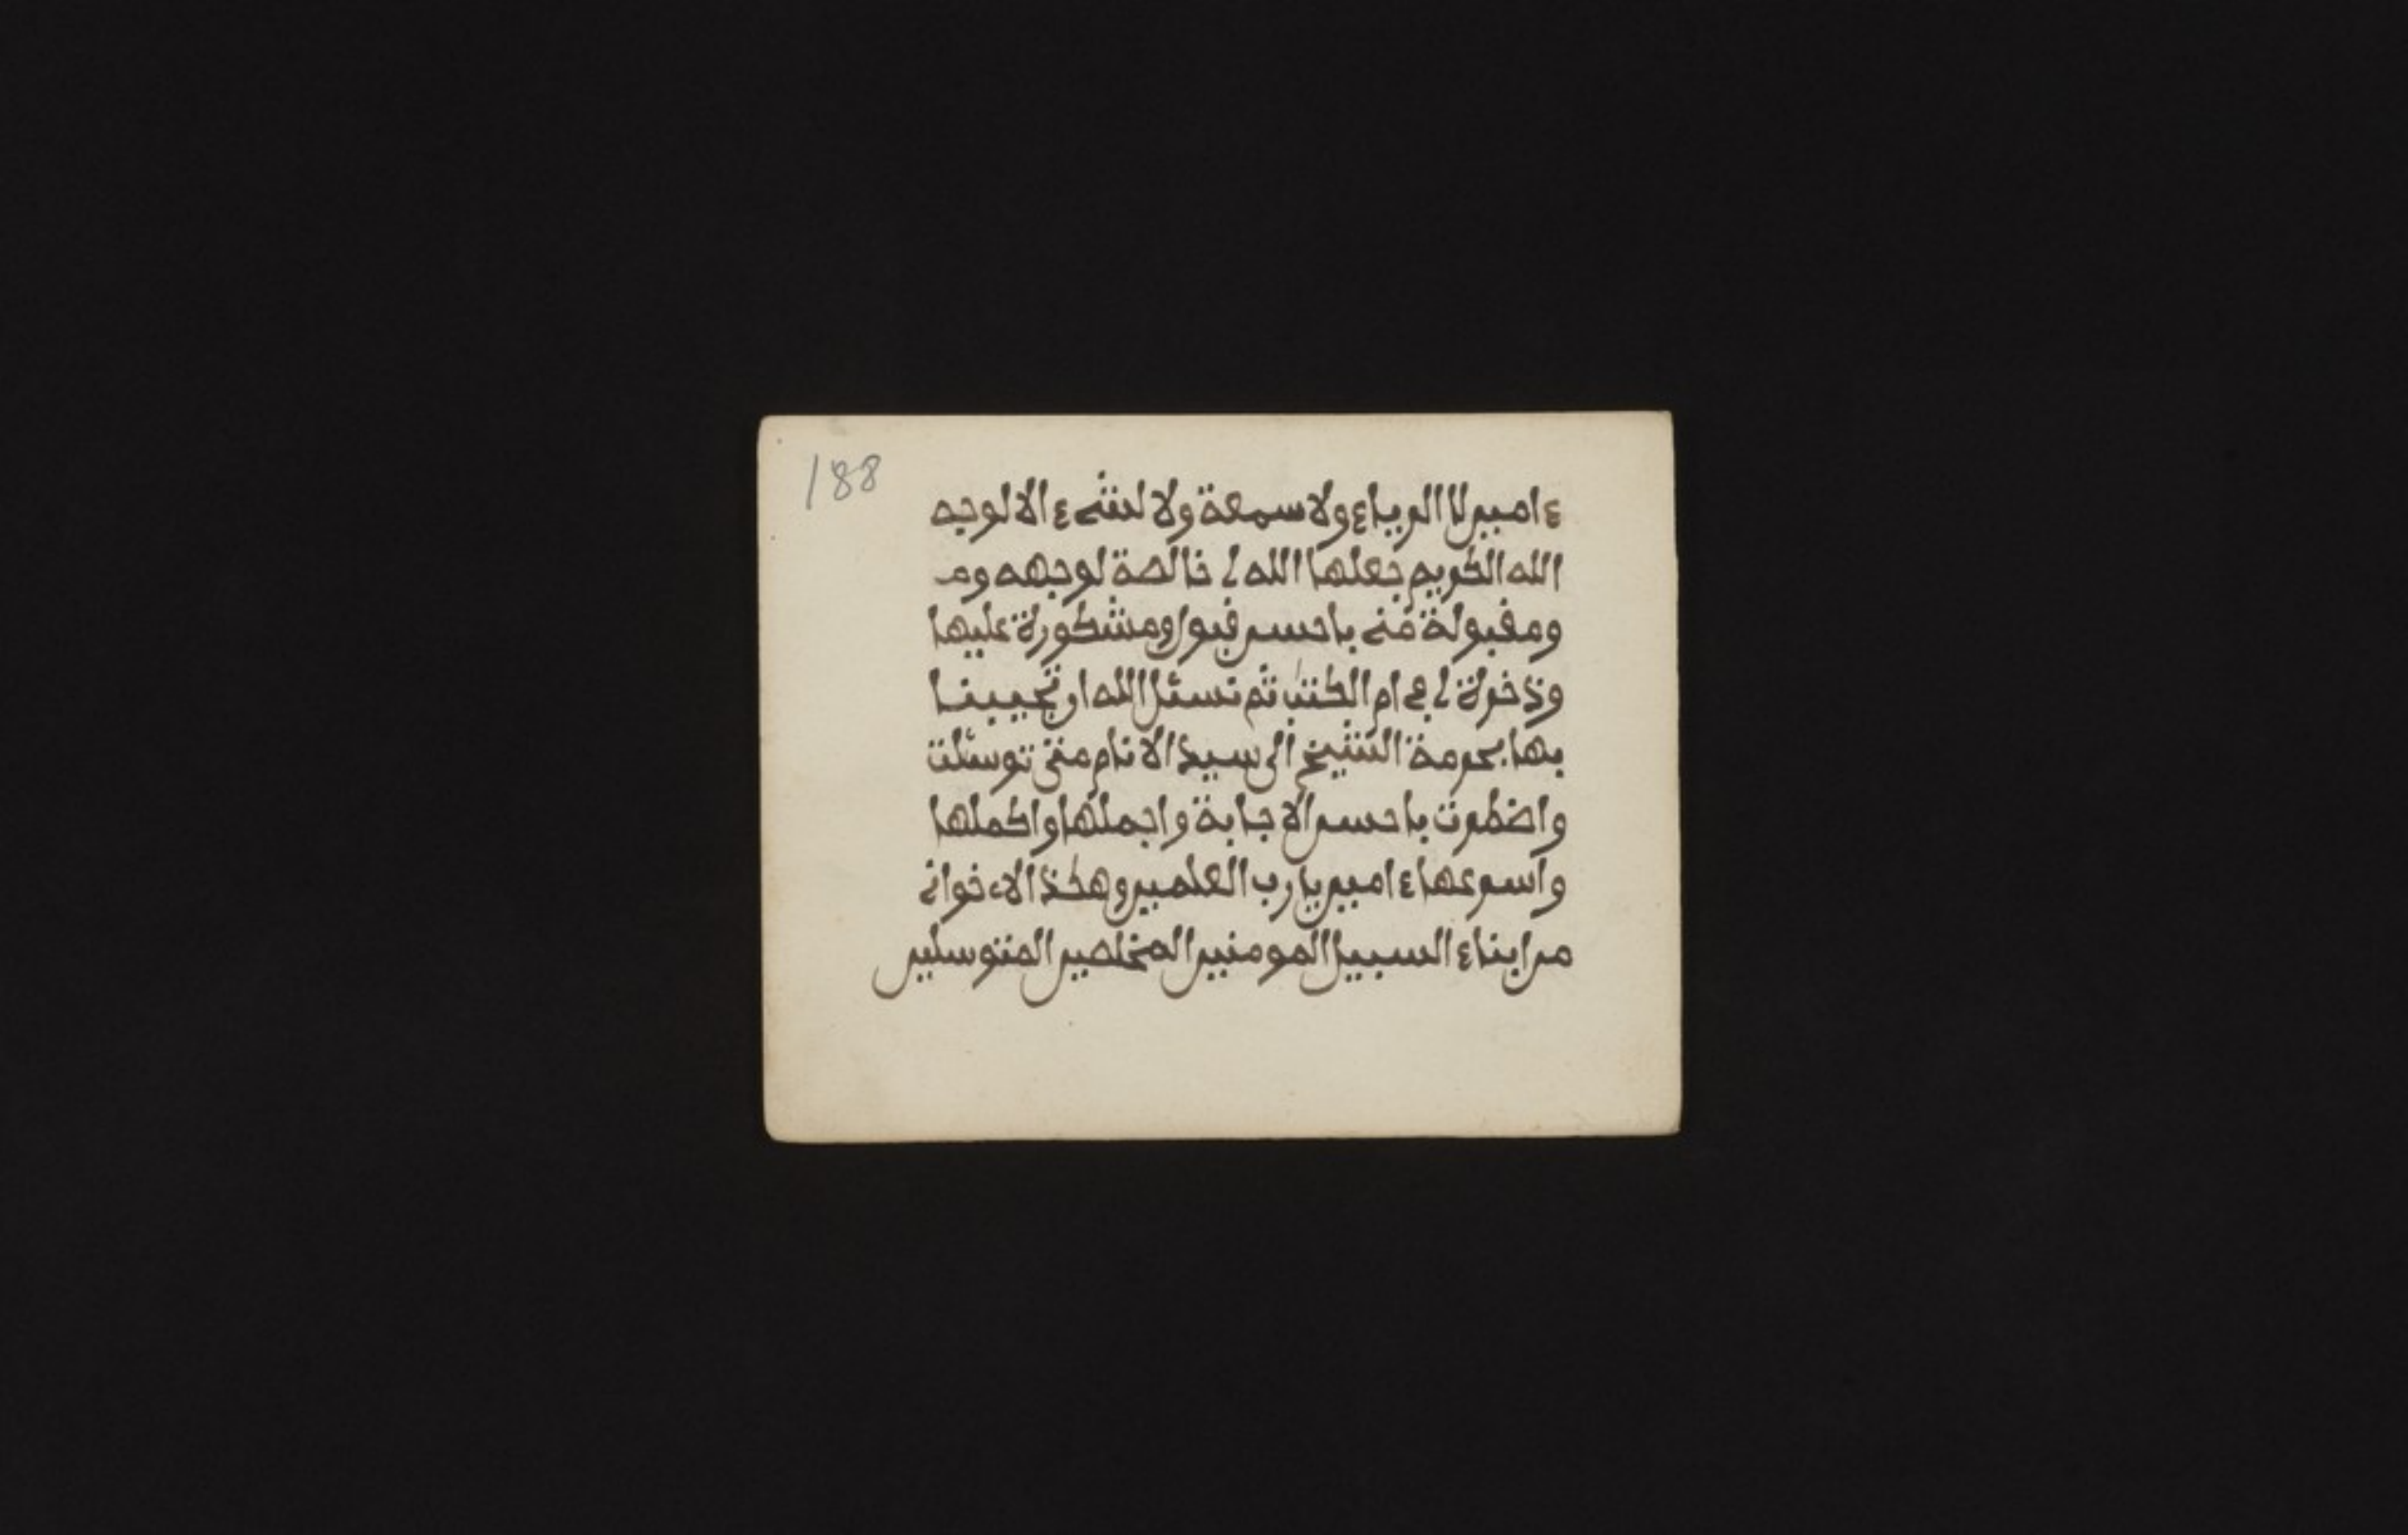 188
ءامين لا لرياء ولا سمعة ولا لشيء الا لوجه
الله الكريم جعلها الله لي خالصة لوجهه وم
ومقبولة منه باحسن قبول ومشكورة عليها
وذخرة لي في ام الكتب ثم نسئل الله ان تجيبنا
بها بحرمة الشيخ الى سيد الانام متى توسلت
واضطرت باحسن الاجابة واجملها واكملها
واسرعها ءامين يا رب العلمين وهكذا الاخواني
من ابناء السبيل المومنين المخلصين المتوسلين